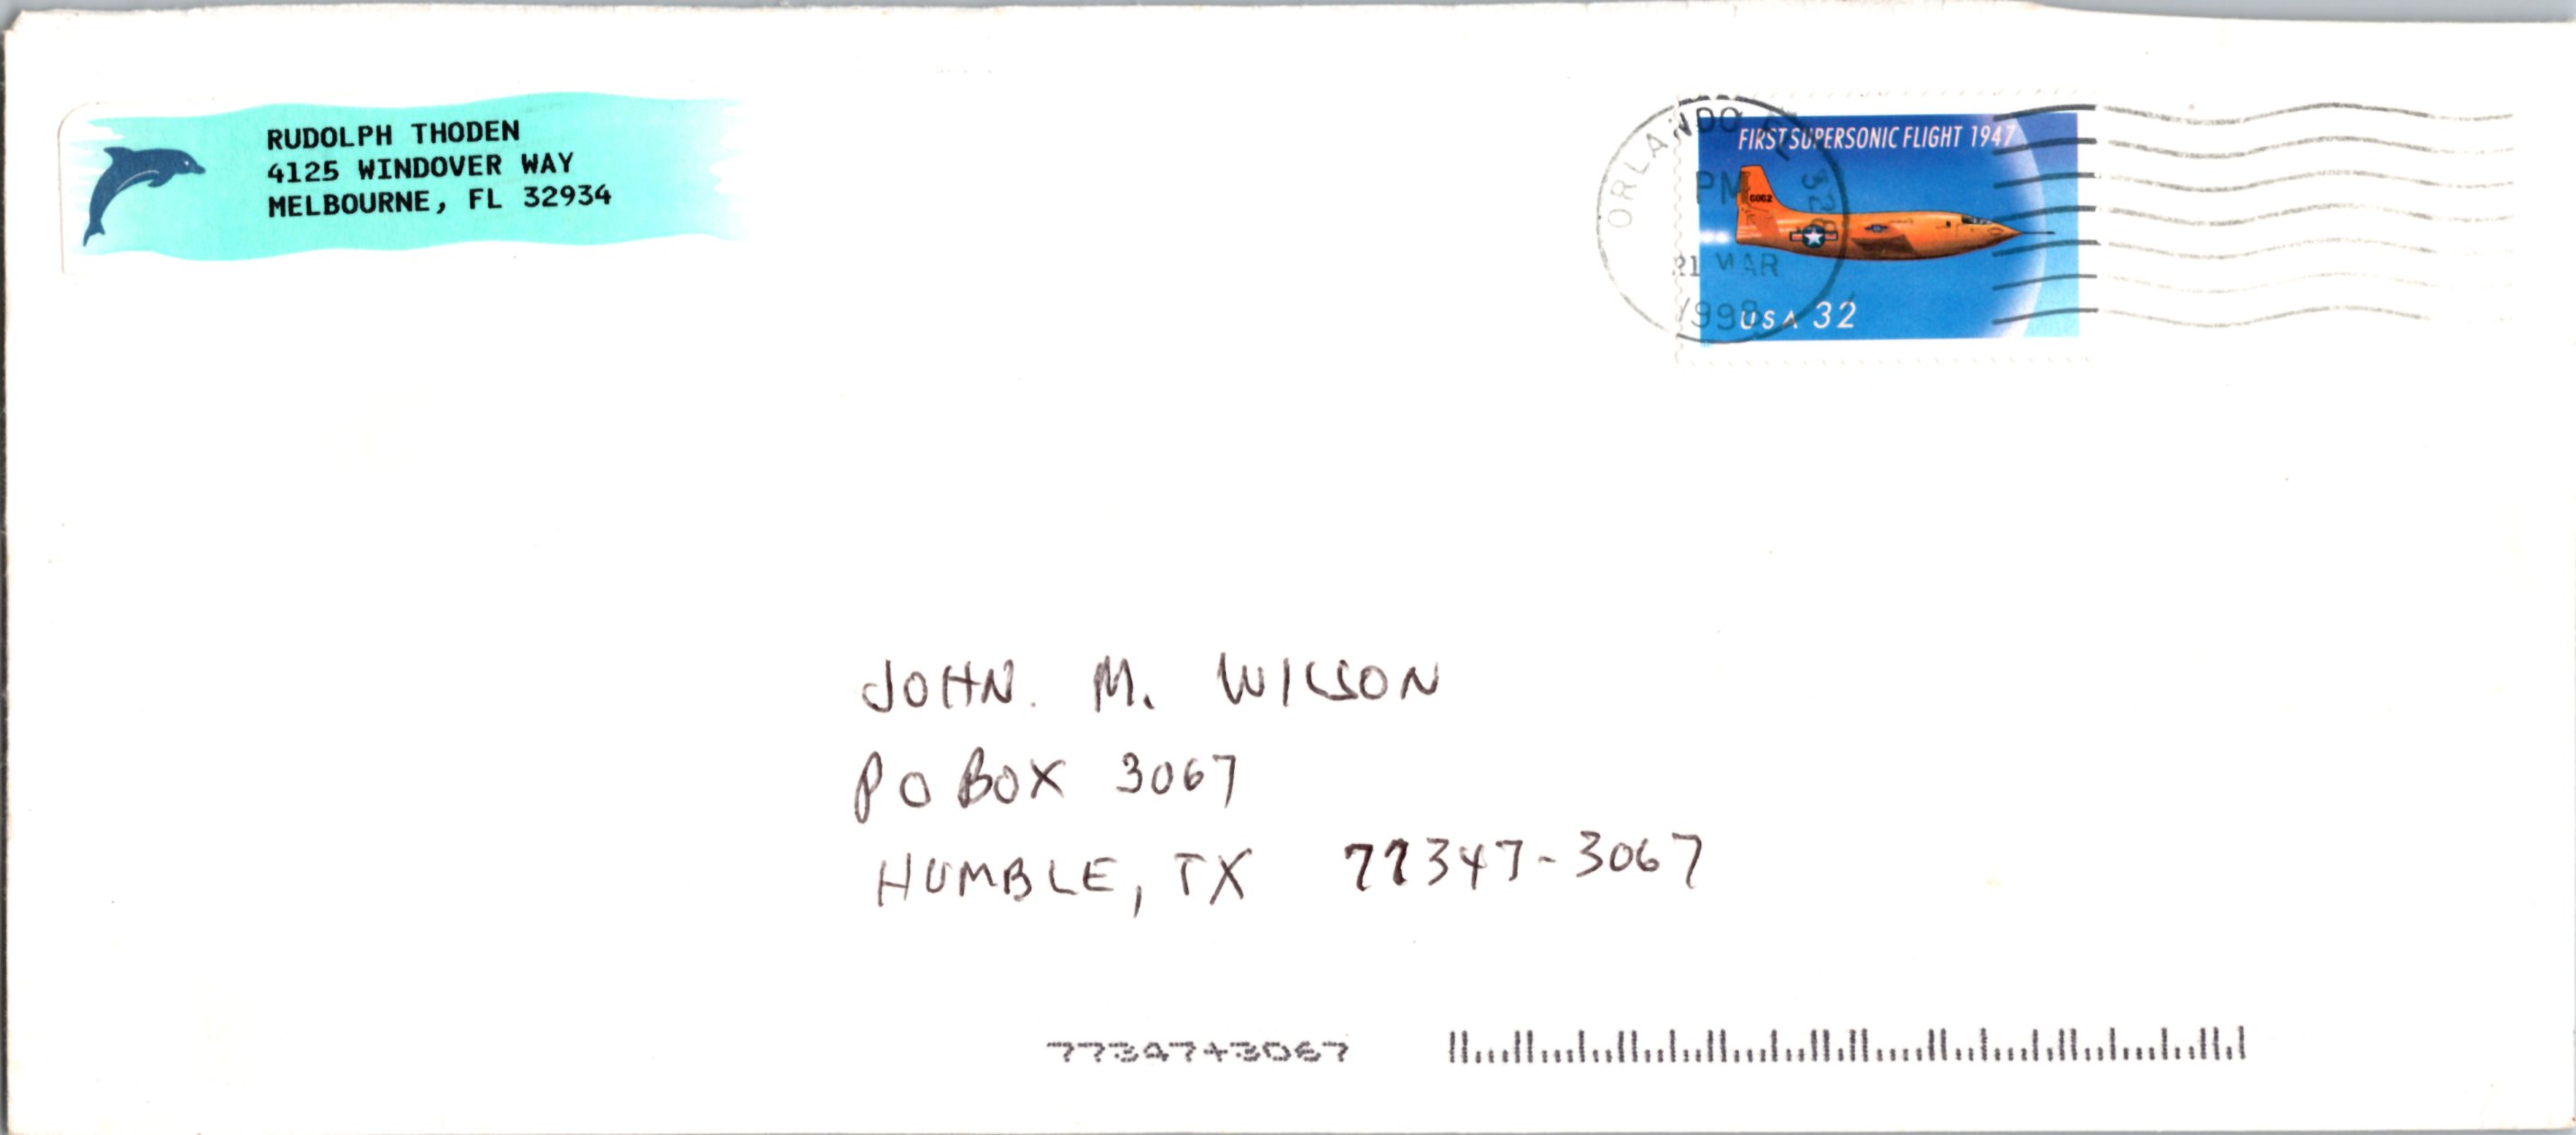 RUDOLPH THODEN
4125 WINDOVER WAY
MELBOURNE, FL 32934
ORLANDO FL 328
PM
21 MAR
1998
FIRST SUPERSONIC FLIGHT 1947
6062
USA 32
JOHN. M. WILSON
PO BOX 3067
HUMBLE, TX 77347-3067
77347+3067